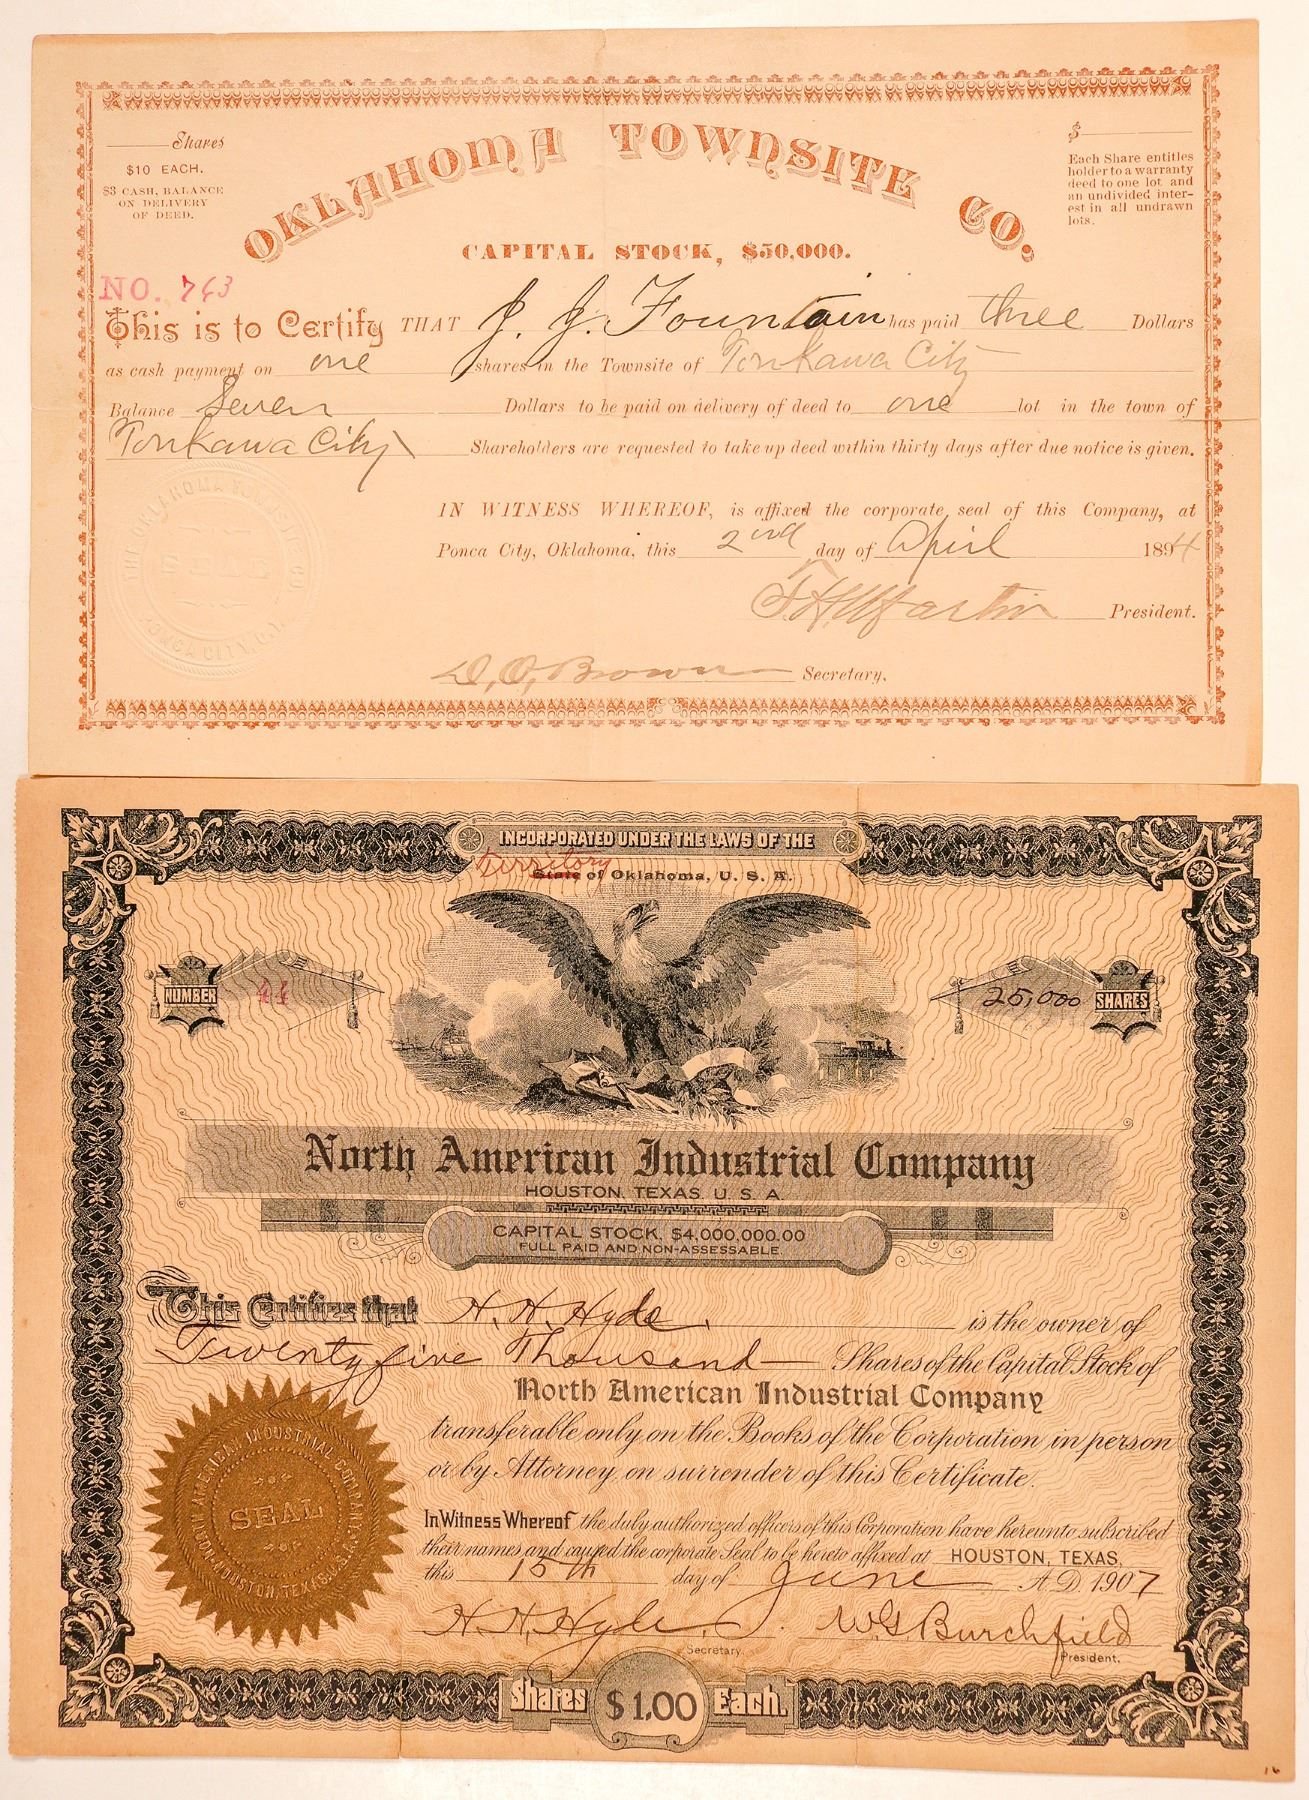 Shares
$10 EACH.
$3 CASH, BALANCE
ON DELIVERY
OF DEED.
OKLAHOMA TOWNSITE CO.
$
Each Share entitles
holder to a warranty
deed to one lot and
an undivided inter-
est in all undrawn
lots.
CAPITAL STOCK, $50,000.
NO. 743
This is to Certify THAT J. J. Fountain has paid three Dollars
as cash payment on one shares in the Townsite of Tonkawa City
Balance Seven Dollars to be paid on delivery of deed to one lot in the town of
Tonkawa City Shareholders are requested to take up deed within thirty days after due notice is given.
IN WITNESS WHEREOF, is affixed the corporate seal of this Company, at
Ponca City, Oklahoma, this 2nd day of April 1894
THE OKLAHOMA TOWNSITE CO
SEAL
PONCA CITY, O.T.
F. H. Martin President.
D. O. Brown Secretary.
INCORPORATED UNDER THE LAWS OF THE
Territory
State of Oklahoma, U. S. A.
NUMBER 44
25,000 SHARES
North American Industrial Company
HOUSTON, TEXAS, U. S. A.
CAPITAL STOCK, $4,000,000.00
FULL PAID AND NON-ASSESSABLE
This Certifies that H. H. Hyde. is the owner of
Twenty five Thousand Shares of the Capital Stock of
North American Industrial Company
transferable only on the Books of the Corporation in person
or by Attorney on surrender of this Certificate.
In Witness Whereof the duly authorized officers of this Corporation have hereunto subscribed
their names and caused the corporate Seal to be hereto affixed at HOUSTON, TEXAS,
this 15th day of June A.D. 1907
NORTH AMERICAN INDUSTRIAL COMPANY
SEAL
HOUSTON, TEXAS, U.S.A.
H. H. Hyde. W G Burchfield
Secretary. President.
Shares $1.00 Each.
16